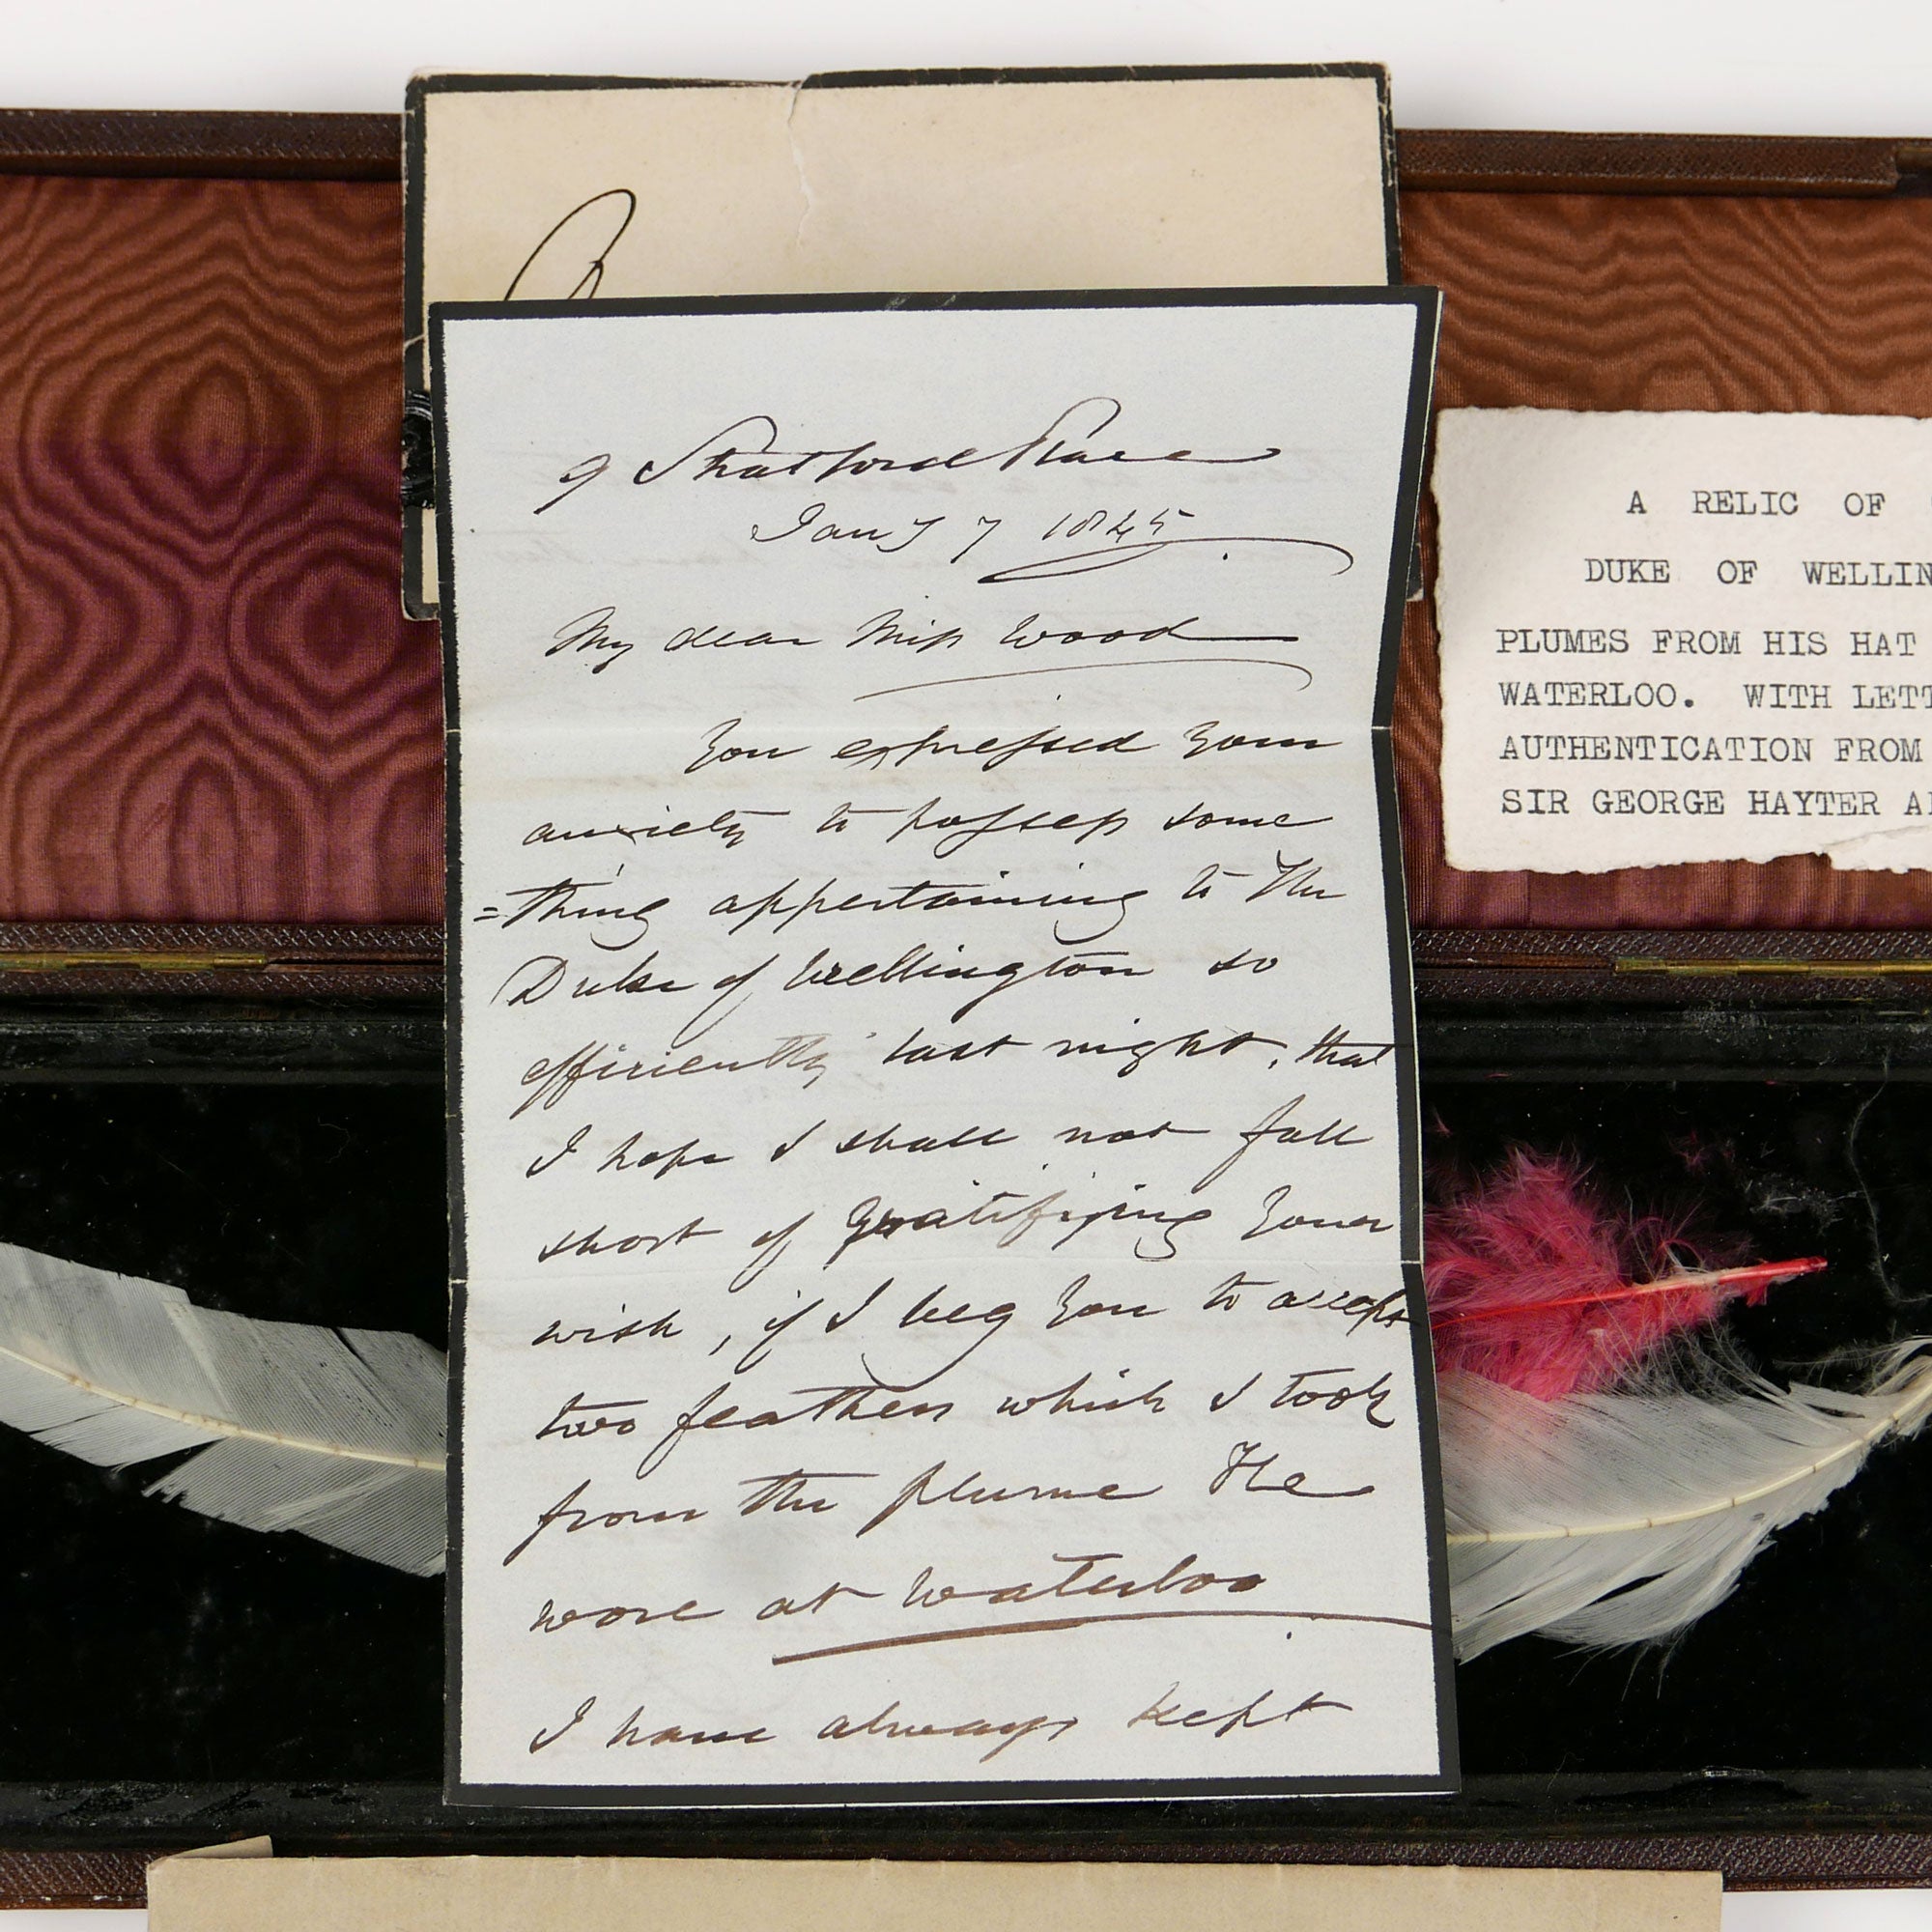 9 Stratford Place
Jany 7 1845
My dear Miss Wood
You expressed your
anxiety to possess some
=thing appertaining to the
Duke of Wellington so
efficiently last night, that
I hope I shall not fall
short of gratifying your
wish, if I beg you to accept
two feathers which I took
from the plume He
wore at Waterloo
I have always kept
A RELIC OF
DUKE OF WELLIN
PLUMES FROM HIS HAT
WATERLOO. WITH LETT
AUTHENTICATION FROM
SIR GEORGE HAYTER A